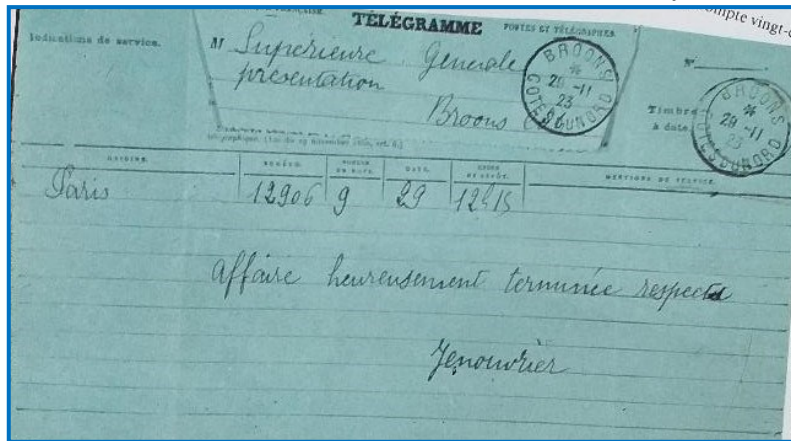 compte vingt-
TÉLÉGRAMME
POSTES ET TÉLÉGRAPHES.
Indications de service.
M Supérieure Generale
présentation
Broons
BROONS
29 -11
23
COTES DU NORD
N°
Timbre
à date
BROONS
29 -11
23
COTES DU NORD
ORIGINE. NUMÉRO. NOMBRE DE MOTS. DATE. HEURE DE DÉPÔT. MENTIONS DE SERVICE.
Paris 12906 9 29 12h15
affaire heureusement terminée respects
Jenouvrier